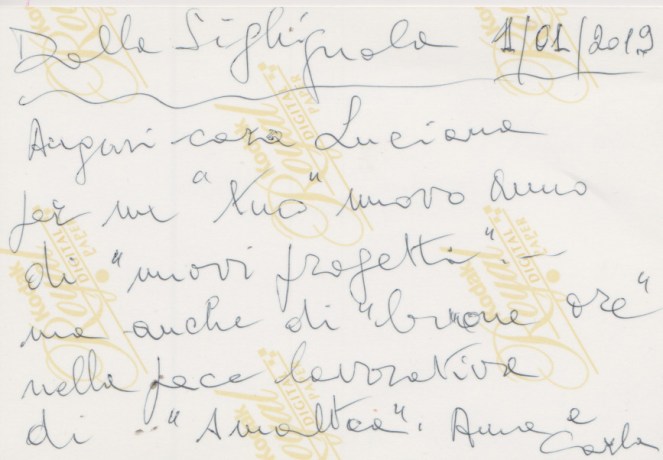 Dalla Sighignola 1/01/2019
Auguri cara Luciana
per un "tuo" nuovo anno
di "nuovi progetti". -
ma anche di "buone ore"
nella pace lavorativa
di "Amaltea". Anna e
Carla
Kodak Royal DIGITAL PAPER